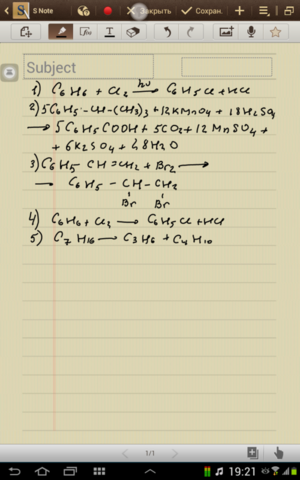 S Note
Закрыть
Сохран.
Subject
1) C6H6 + Cl2 —hν→ C6H5Cl + HCl
2) 5C6H5-CH-(CH3)3 + 12KMnO4 + 18H2SO4
→ 5C6H5COOH + 5CO2 + 12MnSO4 +
+ 6K2SO4 + 28H2O
3) C6H5-CH=CH2 + Br2 →
→ C6H5 - CH - CH2
Br Br
4) C6H6 + Cl2 → C6H5Cl + HCl
5) C7H16 → C3H6 + C4H10
1/1
19:21